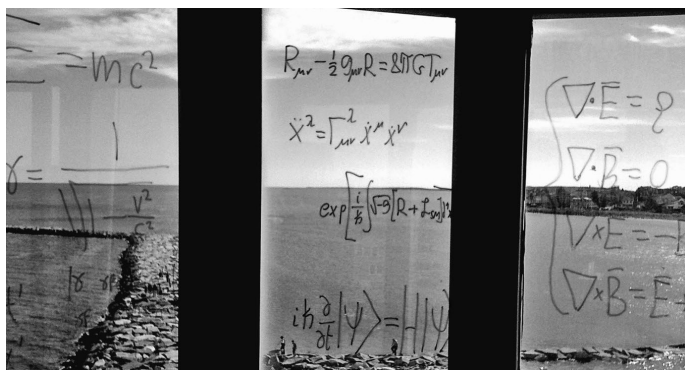 E = mc²
γ = 1 / √(1 - v²/c²)
R_μν - ½ g_μν R = 8πG T_μν
ẍ^λ = Γ^λ_μν ẋ^μ ẋ^ν
exp[i/ħ ∫√-g [R + ℒ_SM] d⁴x
iħ ∂/∂t |ψ⟩ = H|ψ⟩
∇·E̅ = ρ
∇·B̅ = 0
∇×E̅ = -
∇×B̅ = Ė̅ +